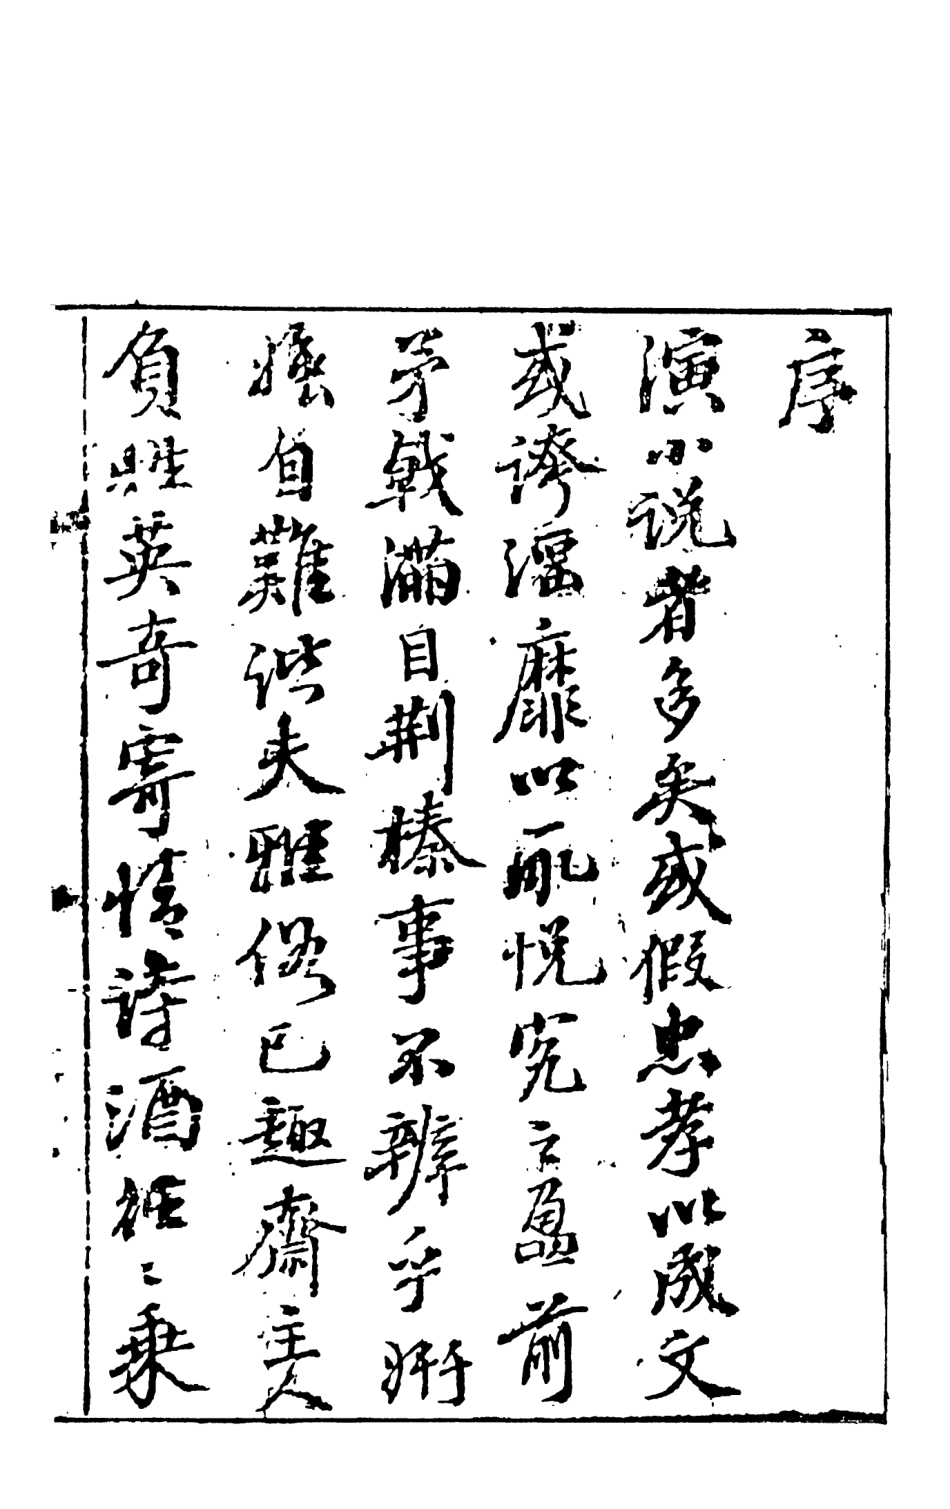 序
演小说者多矣或假忠孝以成文
或誇滛靡以取悦究之盈前
矛戟滿目荆榛事不辨乎妍
媸自難谐夫雅俗已趣齋主人
負性英奇寄情詩酒往〻乗